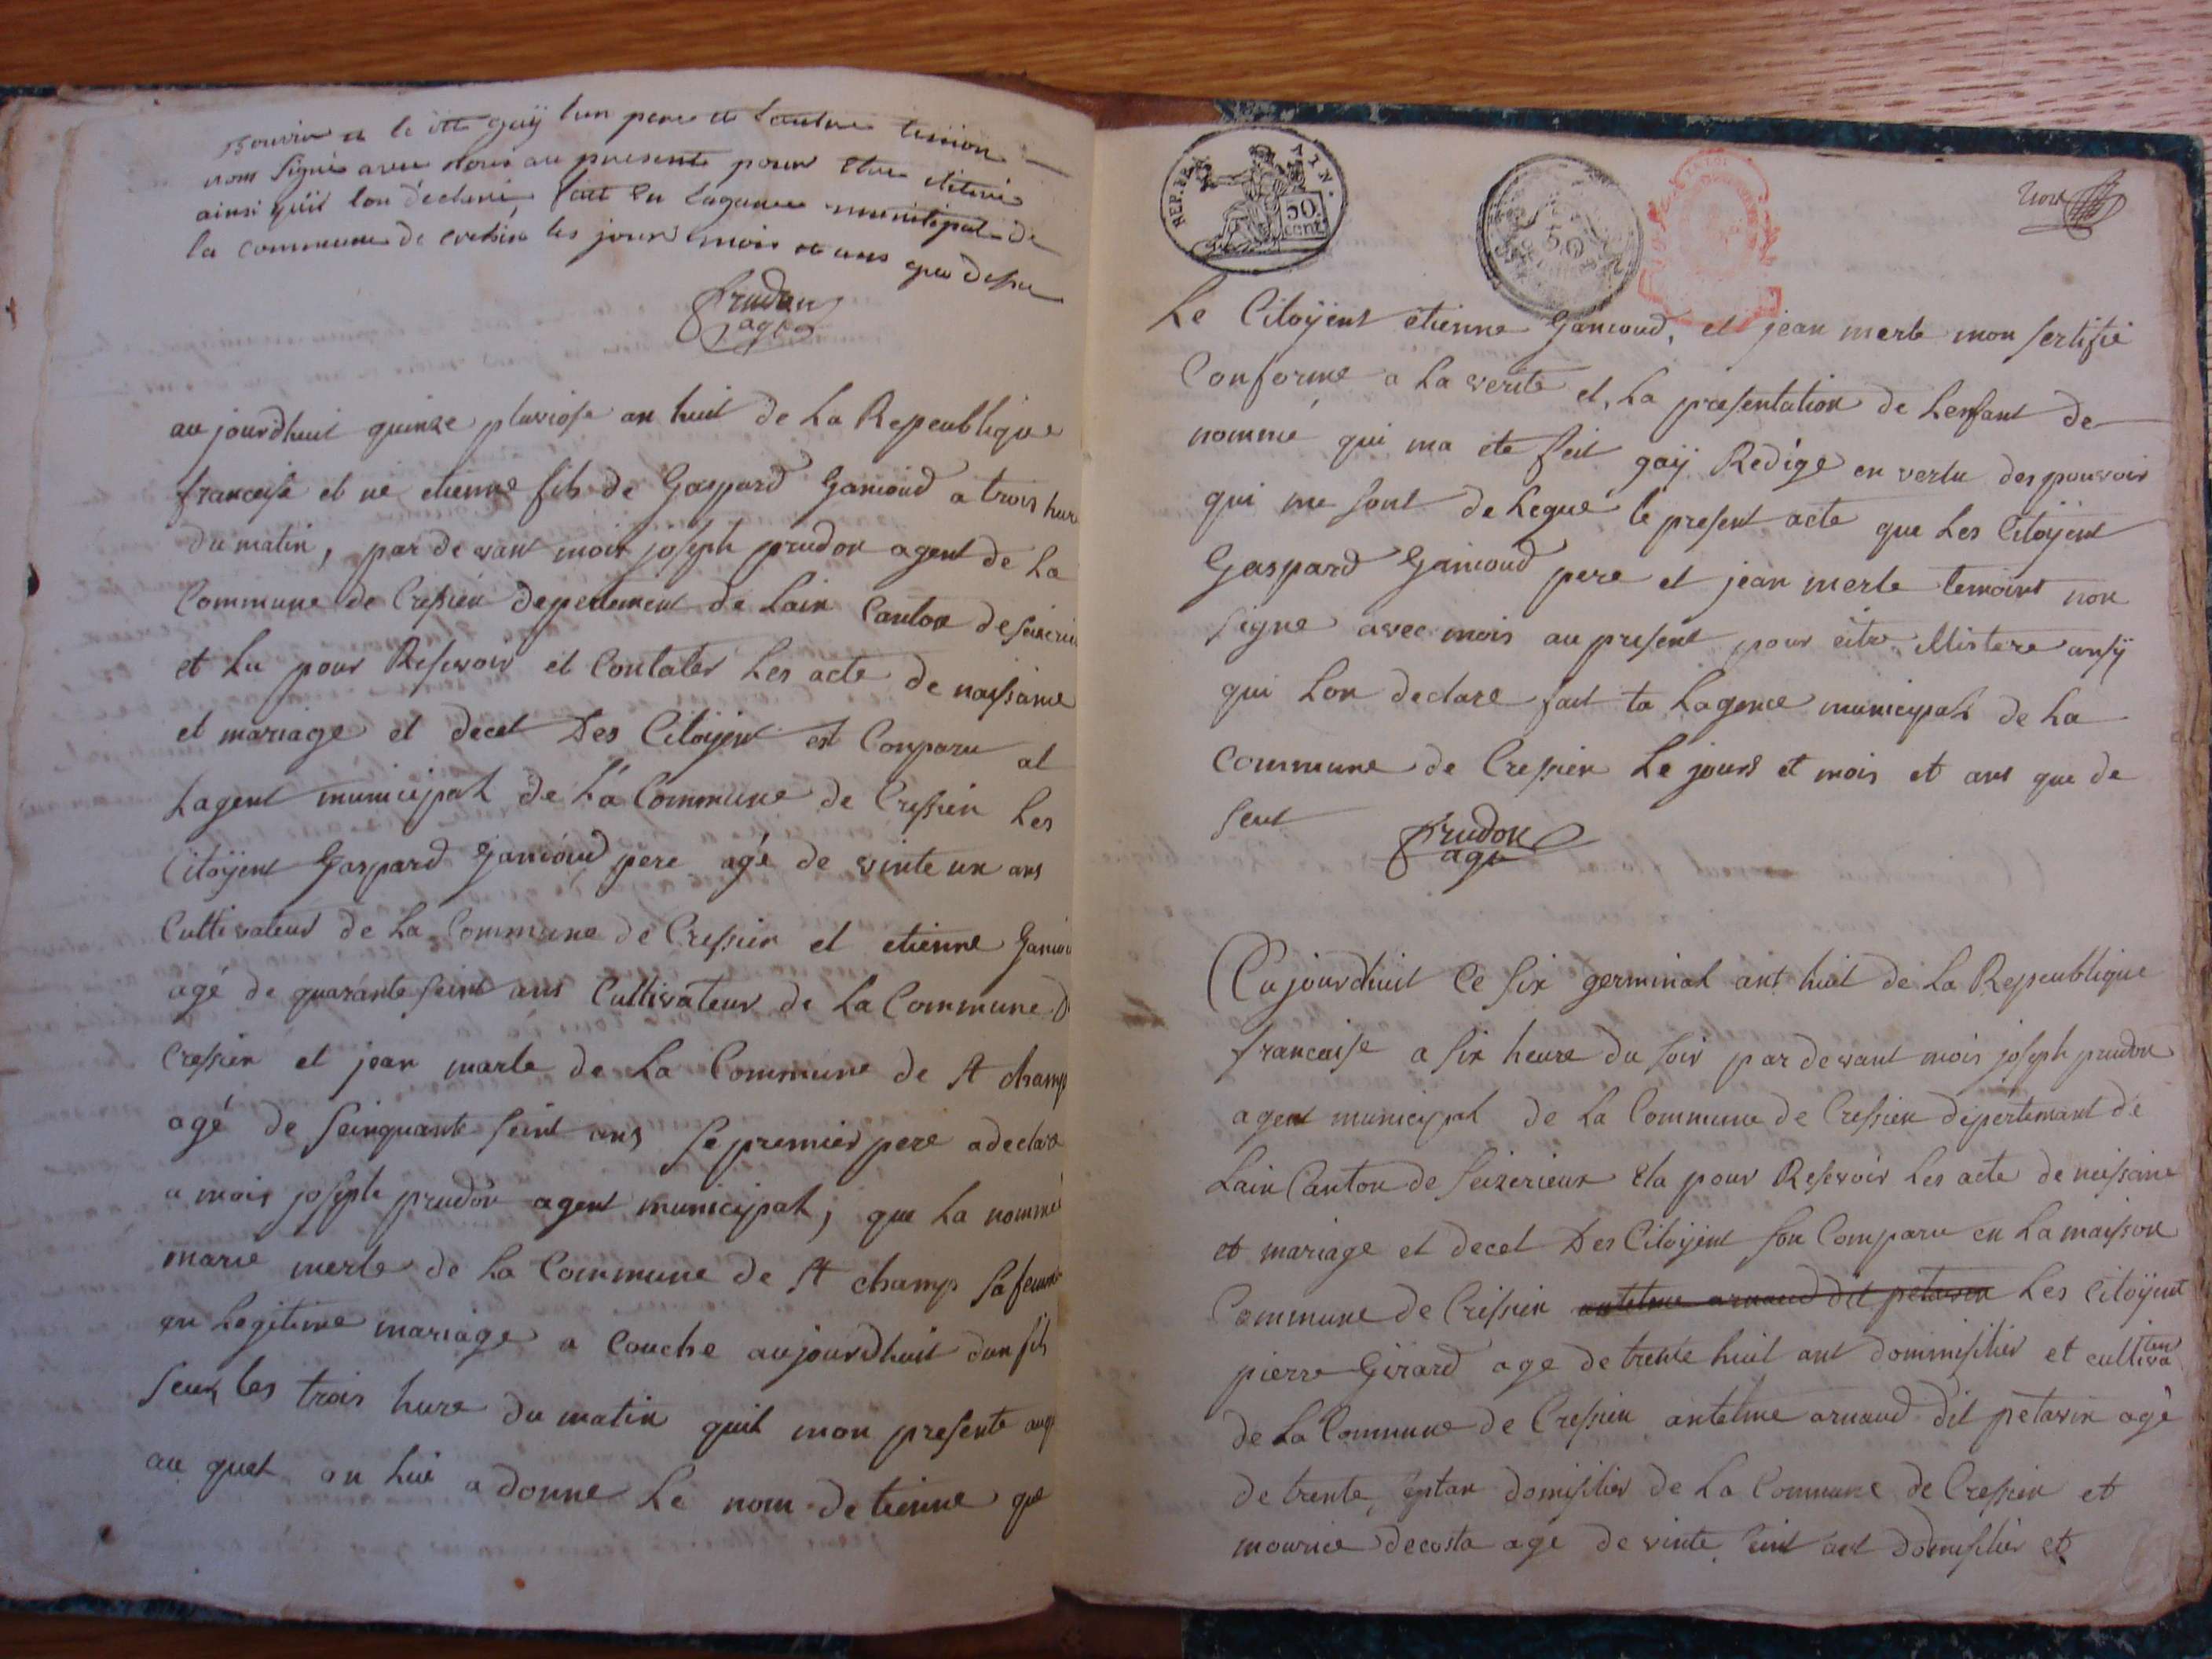 Bouvier et le dit gaÿ l'un pere et lautre temoin
nom Signé avec nous au presente pour etre
ainsi quil lon déclaré, fait en lagance municipal de
la commune de cressin les jour mois et ans que dessu
Prudon
age
au jourdhuit quinze pluviose an huit de La Repeublique
franceise et né etienne fils de Gaspard Ganioud a trois hure
du matin, par de vant mois joseph prudon agent de La
Commune de Cressien depertement de Lain Canton de
et Lu pour Resevoir et Contater Les acte de naissance
et mariage et decet Des Citoÿent est Comparu al
Lagent municipal de La Commune de Cressien Les
Citoÿent Gaspard Ganioud pere agé de vinte un ans
Cultivateur de La Commune de Cressien et etienne
agé de quarante seint ans Cultivateur de La Commune D
Cressien et jean marle de La Commune de St champ
agé de seinquante seint ans Le premier pere a declare
a mois joseph prudon agent municipal, que La nommé
marie merle de La Commune de St champ sa femme
en Legitime mariage a Couche aujourdhuit dun fils
seur les trois hure du matin quil mon presente
au quel on Lui a donne Le nom detienne que
REP. FRA. AIN.
50 cent.
50
trois
Le Citoÿent etienne Ganioud, et jean merle mon sertifié
Conforme a La verite et La presentation de Lenfant de
nommé qui ma ete feit gaÿ Redige en vertu des pouvoir
qui me sont deLegué le present acte que Les Citoÿent
Gaspard Ganioud pere et jean merle temoint non
signe avec mois au present pour eitr Mistere ansÿ
qui Lon declare fait ta Lagence municipal de La
Commune de Cressien Le jours et mois et ans que de
seut
Prudon
age
Cujourdhuit Ce six germinal ant huit de La Repeublique
franceise a six heure du soir par devant mois joseph prudon
agent municipal de La Commune de Cressien depertemant de
Lain Canton de Seizerieux Ela pour Resevoir Les acte de neissance
et mariage et decet Des Citoÿent son Comparu en La maisson
Commune de Cressien antelme arnaud dit petavin Les Citoÿent
pierre Girard age de trente huit ant dommisilier et cultiva
teur
de La Commune de Cressien antelme arnaud dit petavin agé
de trente, eptan domisilier de La Commune de Cressien et
mourice decosta agé de vinte, seint ant domisilier et